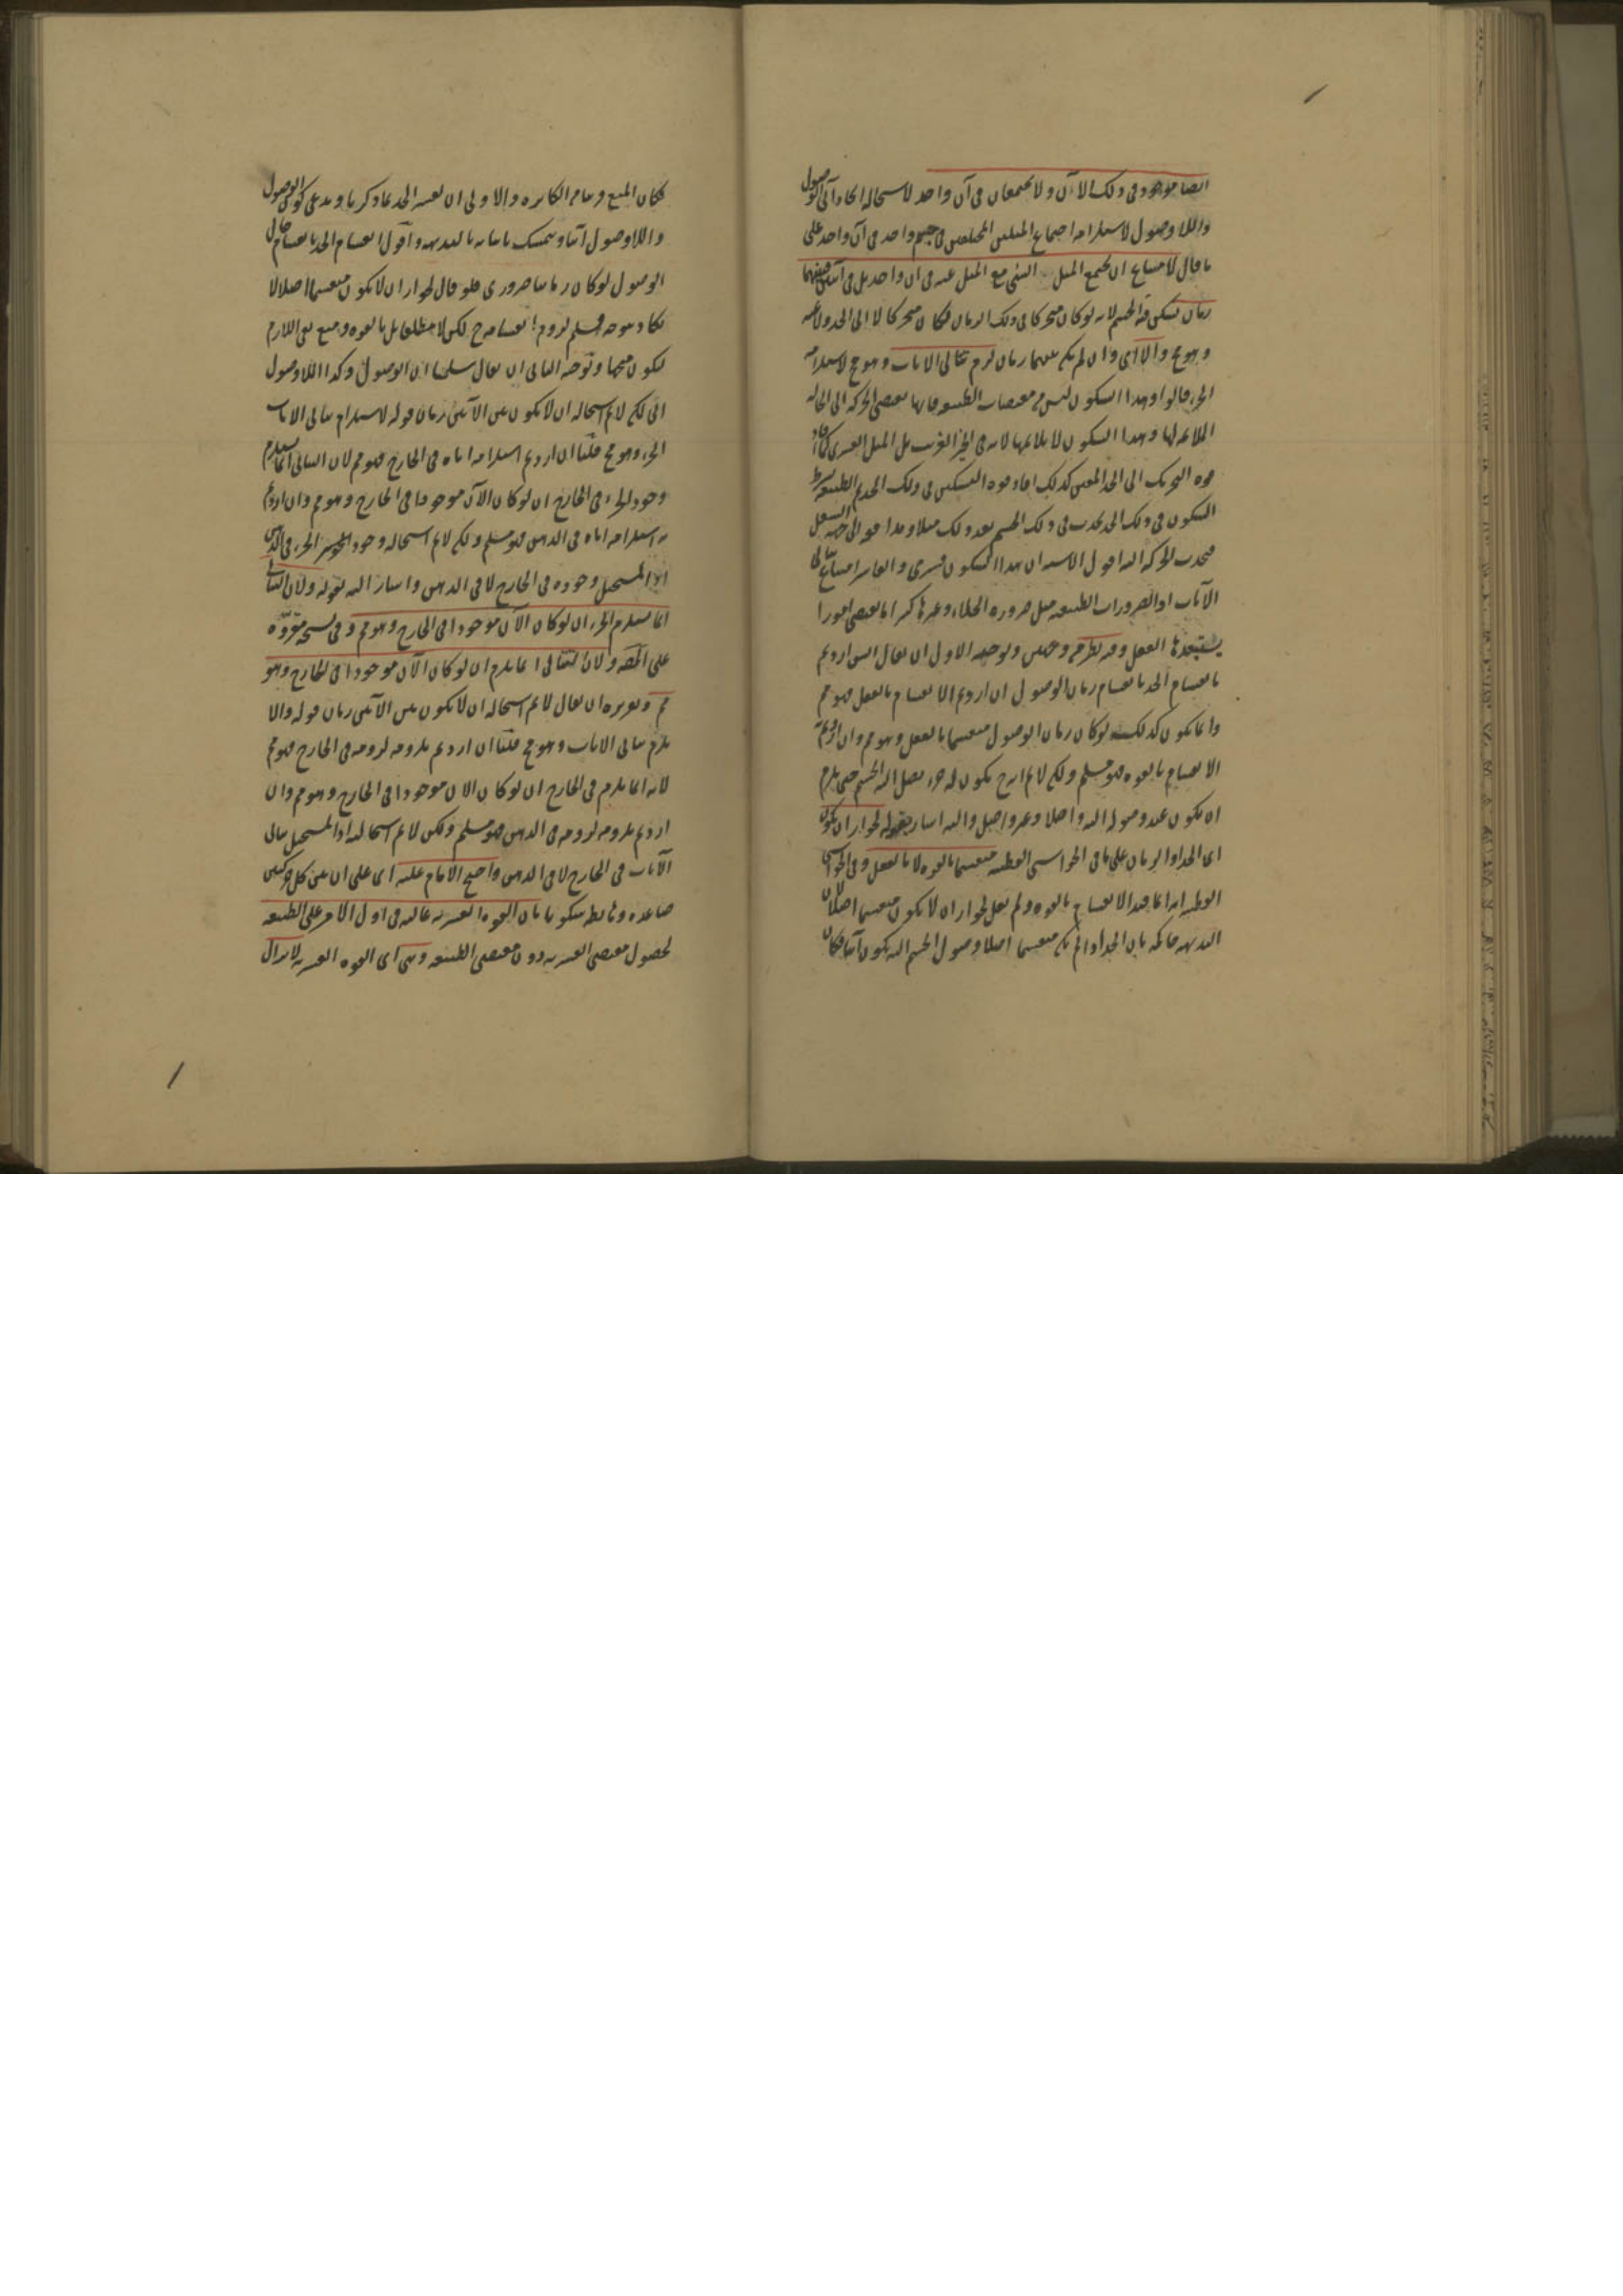 ايضا موجود فى ذلك الآن ولا يجتمعان فى آن واحد لاستحالة اتحاد آنى الوصول
واللاوصول لاستلزامه اجتماع الميلين المختلفين فى جسم واحد فى آن واحد على
ما قال لامتناع ان يجتمع الميل الى الشى مع الميل عنه فى آن واحد بل فى آنين فبينهما
زمان يسكن فيه الجسم لانه لو كان متحركا فى ذلك الزمان لكان متحركا لا الى الحد ولا عنه
وهو مح والا اى وان لم يكن بينهما زمان لزم تتالى الآنات وهو مح لاستلزامه
الجزء قالوا وهذا السكون ليس من مقتضيات الطبيعة فانها تقتضى الحركة الى الحالة
الملائمة لها وهذا السكون لا يلائمها لانه فى الحيز الغريب بل الميل القسرى كما افاد
قوة التحريك الى الحد المعين كذلك افاد قوة التسكين فى ذلك الحد
السكون فى ذلك الحد يحدث فى ذلك الجسم بعد ذلك ميلا
فيحدث الحركة اليه اقول الاشبه ان هذا السكون قسرى والقاسر امتناع تتالى
الآنات او الضرورات الطبيعية مثل ضرورة الخلاء وغيرها كثيرا ما يقتضى امورا
يستبعدها العقل وفيه نظر من وجهين وتوجيه الاول ان يقال ايش اردتم
بانقسام الحد بانقسام زمان الوصول ان اردتم الانقسام بالفعل فهو مم
وانما يكون كذلك لو كان زمان الوصول منقسما بالفعل وهو مم وان اردتم به
الانقسام بالقوة فهو مسلم ولكن لا نم انه ح يكون له جزء يصل اليه الجسم حتى يلزم
ان يكون عند وصوله اليه واصلا وغير واصل واليه اشار بقوله لجواز ان يكون
اى الحد او الزمان على ما فى الحواشى القطبية منقسما بالقوة لا بالفعل وفى الحواشى
القطبية انه انما قيد الانقسام بالقوة ولم يقل لجواز ان لا يكون منقسما اصلا لان
البديهة حاكمة بان الحد اذا لم يكن منقسما اصلا وصول الجسم اليه يكون آنيا فكان
فكان المنع من باب المكابرة والاولى ان يفسر الحد بما ذكرنا ويدعى كون الوصول
واللاوصول آنيا ويتمسك باثباته بالبديهة واقول انقسام الحد بانقسام حال
الوصول لو كان زمانيا ضرورى فلو قال لجواز ان لا يكون منقسما اصلا لا
لكاد موجه فيسلم لزوم انقسامه ح لكن لا مطلقا بل بالقوة ومنع نفى اللازم
ليكون متجها وتوجيه الثانى ان يقال سلمنا ان الوصول وكذا اللاوصول
آنى لكن لا نم استحالة ان لا يكون بين الآنين زمان قوله لاستلزام تتالى الآنات
الجزء وهو مح قلنا ان اردتم استلزامه اياه فى الخارج فهو مم لان التتالى انما يستلزم
وجود الجزء فى الخارج ان لو كان الآن موجودا فى الخارج وهو مم وان اردتم
به استلزامه اياه فى الذهن فهو مسلم ولكن لا نم استحالة وجود الجزء فى الذهن
اذ المستحيل وجوده فى الخارج لا فى الذهن واشار اليه بقوله ولان التتالى
انما يستلزم الجزء ان لو كان الآن موجودا فى الخارج وهو مم وفى نسخة مقروة
على المص ولان التتالى انما يلزم ان لو كان الآن موجودا فى الخارج وهو
مم وتقريره ان يقال لا نم استحالة ان لا يكون بين الآنين زمان قوله والا
يلزم تتالى الآنات وهو مح قلنا ان اردتم بلزومه لزومه فى الخارج فهو مم
لانه انما يلزم فى الخارج ان لو كان الآن موجودا فى الخارج وهو مم وان
اردتم بلزومه لزومه فى الذهن فهو مسلم ولكن لا نم استحالته اذ المستحيل تتالى
الآنات فى الخارج لا فى الذهن واحتج الامام عليه اى على ان بين كل حركتين
صاعدة وهابطة سكونا بان القوة القسرية غالبة فى اول الامر على الطبيعة
لحصول مقتضى القسرية دون مقتضى الطبيعة وهى اى القوة القسرية لا تزال